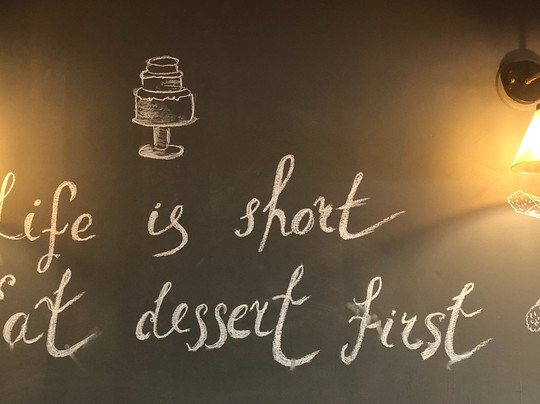 Life is short
Eat dessert first